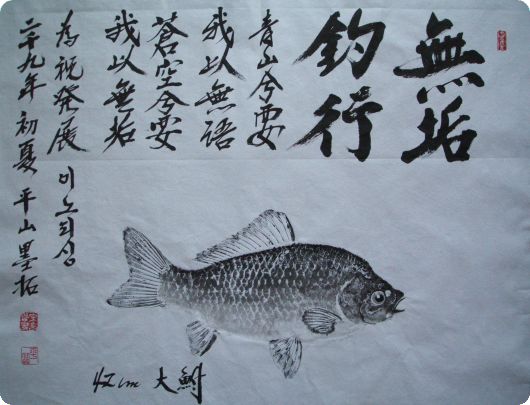 無垢
釣行
青山兮要
我以無語
蒼空兮要
我以無垢
為祝發展
二千九年 初夏 平山墨拓
42cm 大鮒